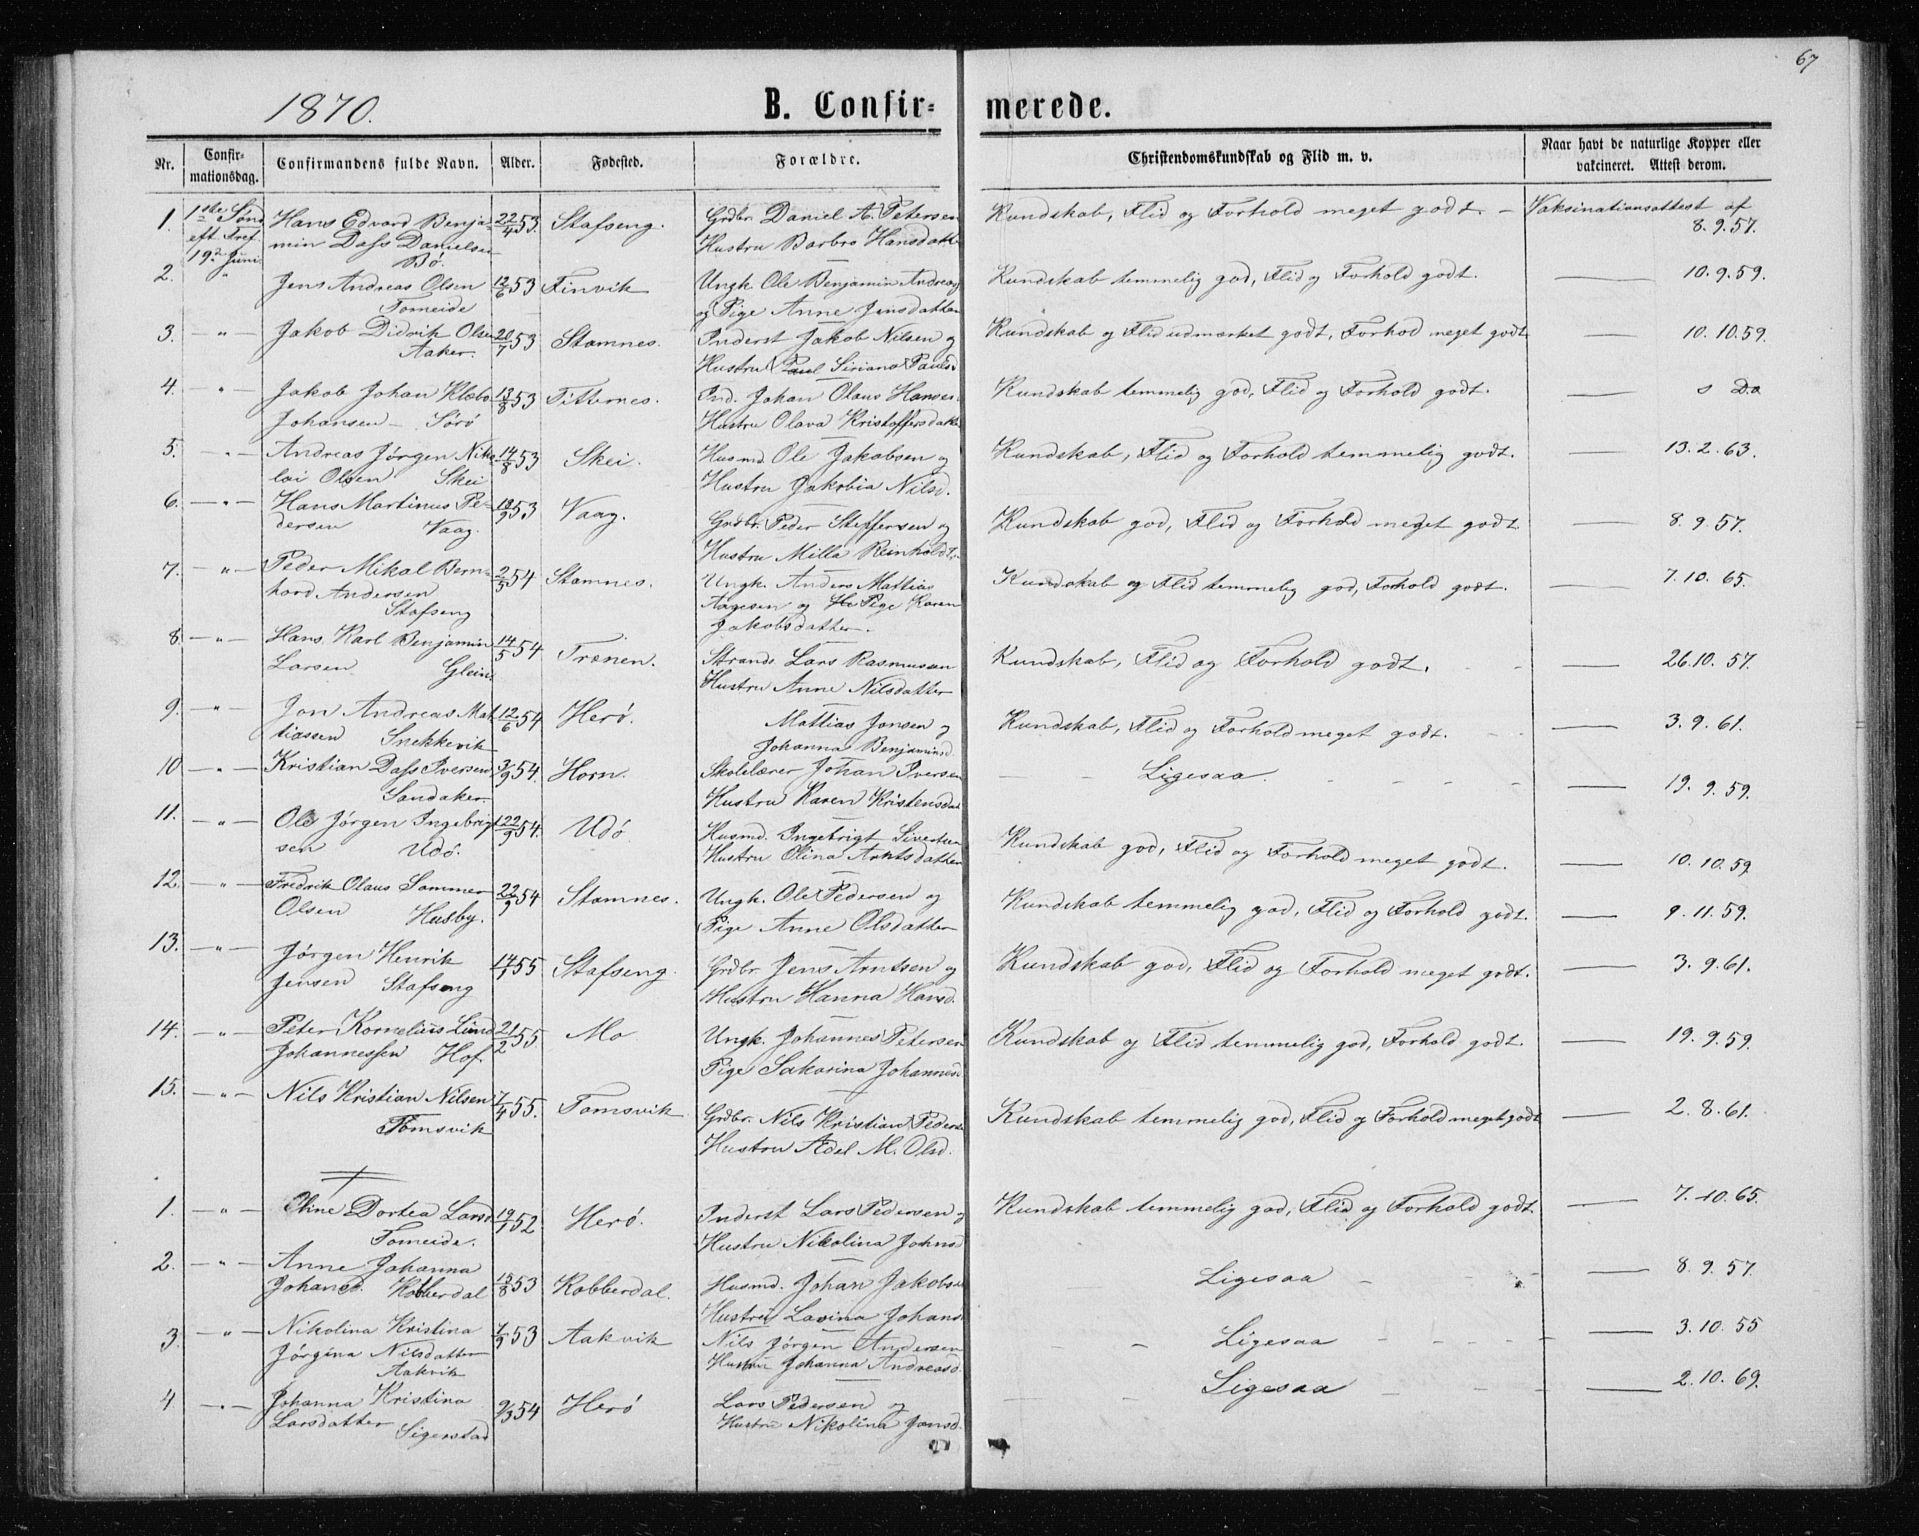 67
1870.
B. Confir-
merede.
Nr.
Confir-
mationsdag.
Confirmandens fulde Navn.
Alder.
Fødested.
Forældre.
Christendomskundskab og Flid m. v.
Naar havt de naturlige Kopper eller
vakcineret. Attest derom.
1. 1ste Sønd Hans Edvard Benja- 22/4 53. Stafseng. Grdbr. Daniel A. Petersen Kundskab, Flid og Forhold meget godt. — Vaksinationsattest af
eft Tref min Dass Danielsen Hustru Barbro Hansdatt 8.9.57.
19de Juni. Bø.
2. " Jens Andreas Olsen 12/6 53 Finvik Ungk. Ole Benjamin Andreas Kundskab temmelig god, Flid og Forhold godt. — 10.9.59.
Tomeide og Pige Anne Jensdatter
3. — " — Jakob Didvik Olsen 20/7 53 Stamnes. Inderst Jakob Nilsen og Kundskab og Flid udmærket godt, Forhod meget godt — 10.10.59.
Aaker. Hustru Paul Siriana Paulsd
4. — " — Jakob Johan Klæbo 13/8 53 Titternes. Ind. Johan Olaus Hanses. Kundskab temmelig god, Flid og Forhold godt. — s Do
Johansen — Sørø Hustru Olava Kristoffersdatter
5. — " — Andreas Jørgen Niko 14/8 53 Skei. Husmd. Ole Jakobsen og Kundskab, Flid og Forhold temmelig godt. — 13.2.63.
lai Olsen Skei Hustru Jakobia Nilsd.
6. — " — Hans Martinus Pe- 18/9 53 Vaag. Grdbr. Peder Steffensen og Kundskab god, Flid og Forhold meget godt. — 8.9.57.
dersen Vaag. Hustru Milla Reinholdt.
7. — " — Peder Mikal Bern- 2/5 54 Stamnes. Ungk. Anders Mattias Kundskab og Flid temmelig god, Forhold godt. — 7.10.65.
hard Andersen Aagesen og He Pige Karen
Stafseng Jakobsdatter.
8. — " — Hans Karl Benjamin 14/5 54 Trænen. Strands. Lars Rasmussen Kundskab, Flid og Forhold godt. — 26.10.57.
Larsen Glein. Hustru Anne Nilsdatter
9. — " — Jon Andreas Mat 12/6 54 Herø. Mattias Jonsen og Kundskab, Flid og Forhold meget godt. — 3.9.61.
tiassen Snekkevik Johanna Benjaminsd.
10 — " — Kristian Dass Iversen 3/9 54. Horn. Skolelærer Johan Iversen Ligesaa. — 19.9.59.
Sandaker. Hustru Karen Kristensdat
11. — " — Ole Jørgen Ingebrigt 22/9 54. Udø Husmd. Ingebrigt Sivertsen Kundskab god, Flid og Forhold meget godt. — 10.10.59
sen Udø. Hustru Olina Arntsdatter
12. — " — Fredrik Olaus Sommer 22/9 54 Stamnes. Ungk. Ole Pedersen og Kundskab temmelig god, Flid og Forhold godt. — 9.11.59.
Olsen Husby. Pige Anne Olsdatter
13. — " — Jørgen Henrik 14/1 55 Stafseng. Grdbr. Jens Arntsen og Kundskab god, Flid og Forhold meget godt. — 3.9.61.
Jensen Stafseng Hustru Hanna Hansd.
14. — " — Peter Kornelius Lund 21/2 55. Mo Ungk. Johannes Petersen Kundskab og Flid temmelig god, Forhold godt. — 19.9.59.
Johannessen Hof. Pige Sakarina Johannesd
15. — " — Nils Kristian Nilsen 7/4 55. Tomsvik Grdbr. Nils Kristian Peders Kundskab temmelig god, Flid og Forhold meget godt — 2.8.61.
Tomsvik Hustru Adel M. Olsd.
1. — " — Oline Dortea Larsd 19/1 52. Herø. Inderst Lars Pedersen og Kundskab temmelig god, Flid og Forhold godt. — 7.10.65.
Tomeide. Hustru Nikolina Johnsd
2. — " — Anne Johanna 18/8 53 Kobberdal. Husmd. Johan Jakobsen Ligesaa — 8.9.57.
Johansd. Kobberdal Hustru Lavina Johansd
3. — " — Nikolina Kristina 1/9 53 Aakvik Nils Jørgen Andersen Ligesaa — 3.10.55
Jørgina Nilsdatter Hustru Johanna Andreasd.
Aakvik
4 — " — Johanna Kristina 9/3 54 Herø Lars Pedersen og Ligesaa — 2.10.69.
Larsdatter Sigerstad Hustru Nikolina Jonsd.